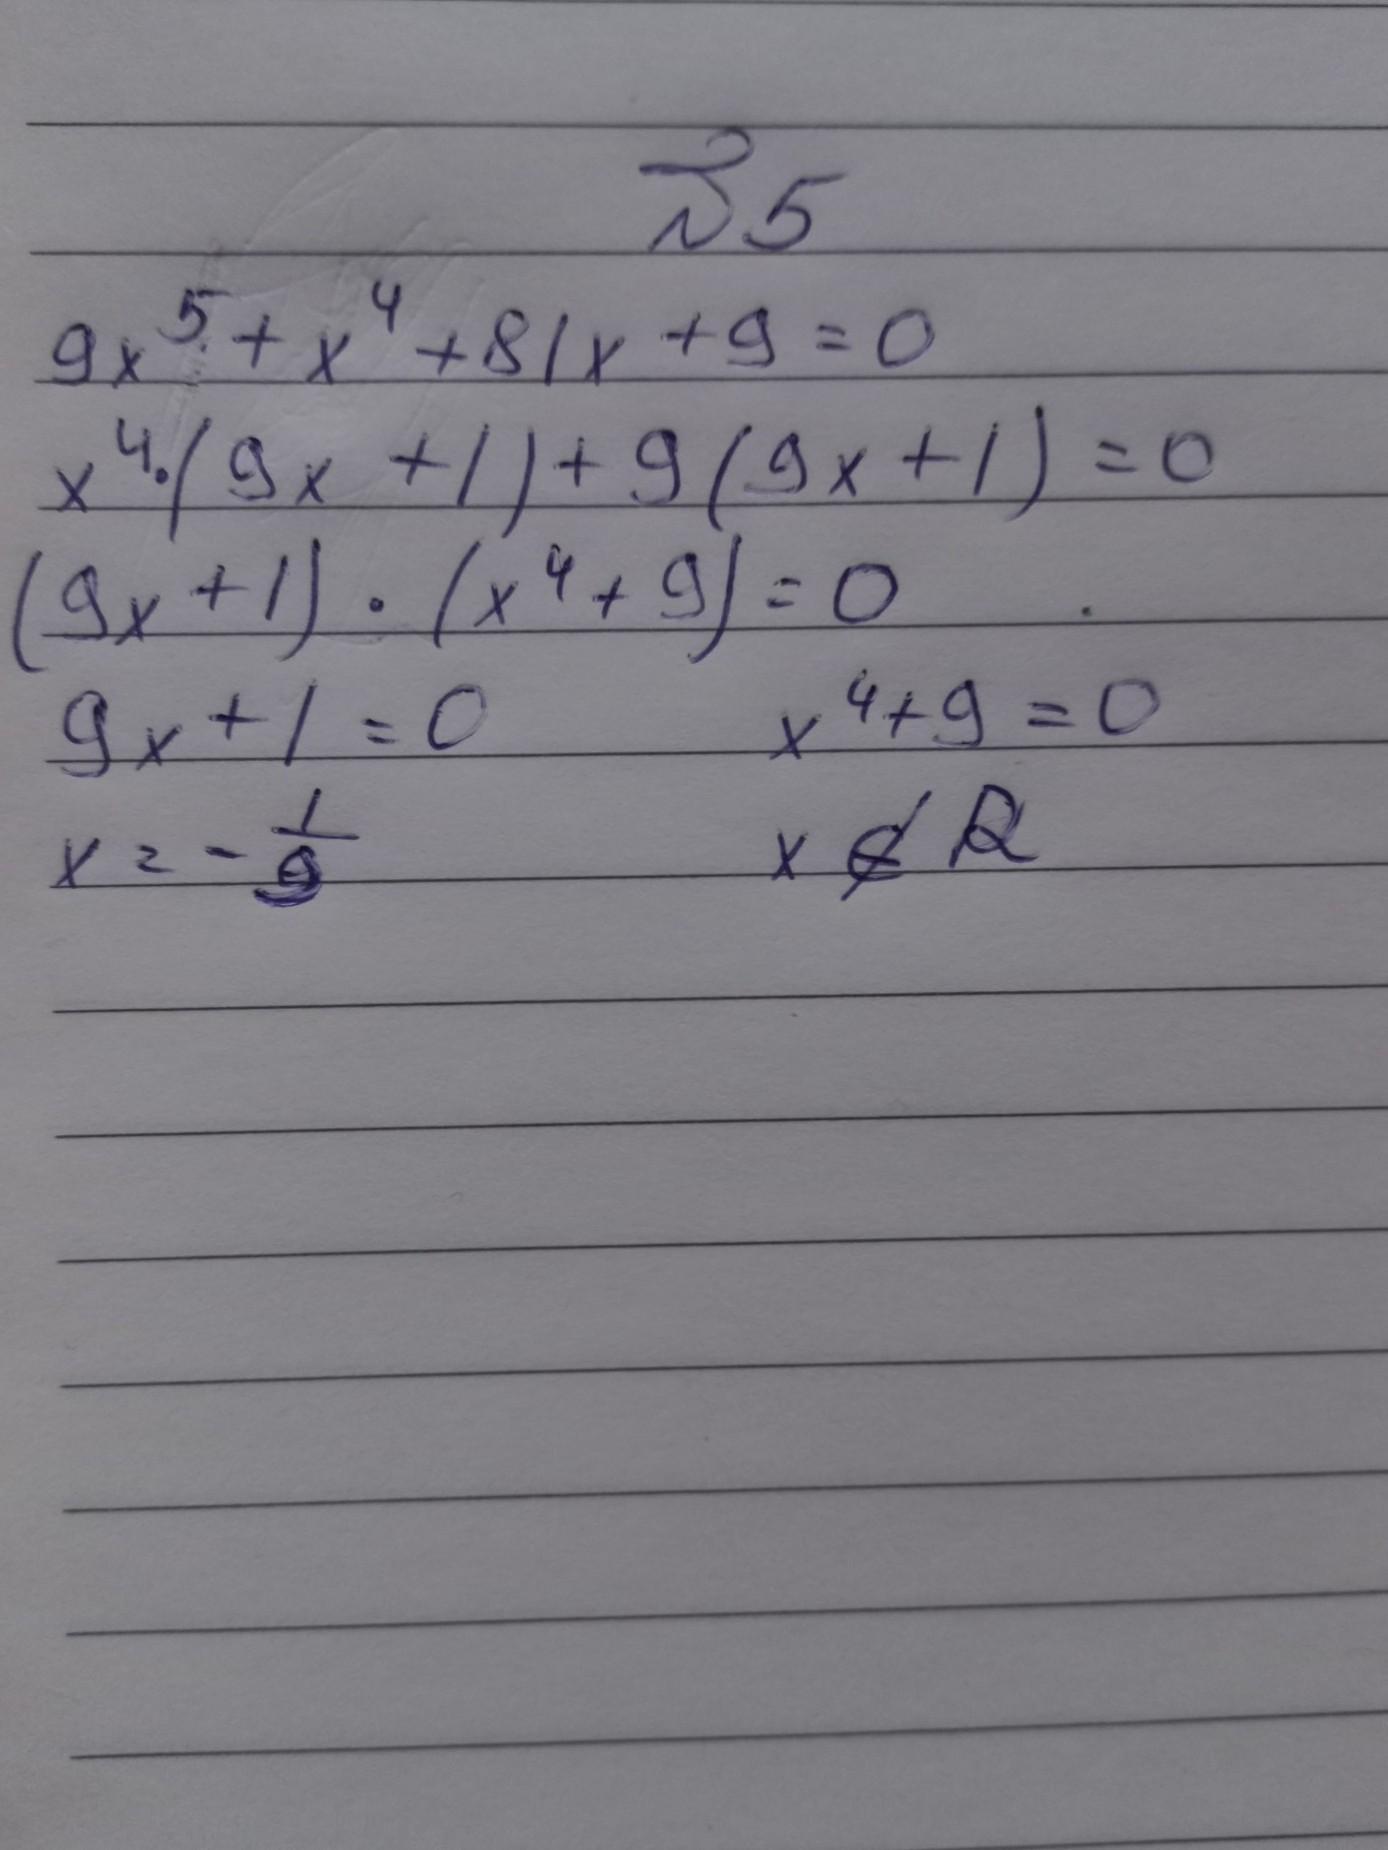 №5
9x⁵ + x⁴ + 81x + 9 = 0
x⁴·(9x + 1) + 9(9x + 1) = 0
(9x + 1) · (x⁴ + 9) = 0
9x + 1 = 0 x⁴ + 9 = 0
x = - 1/9 x ∉ R